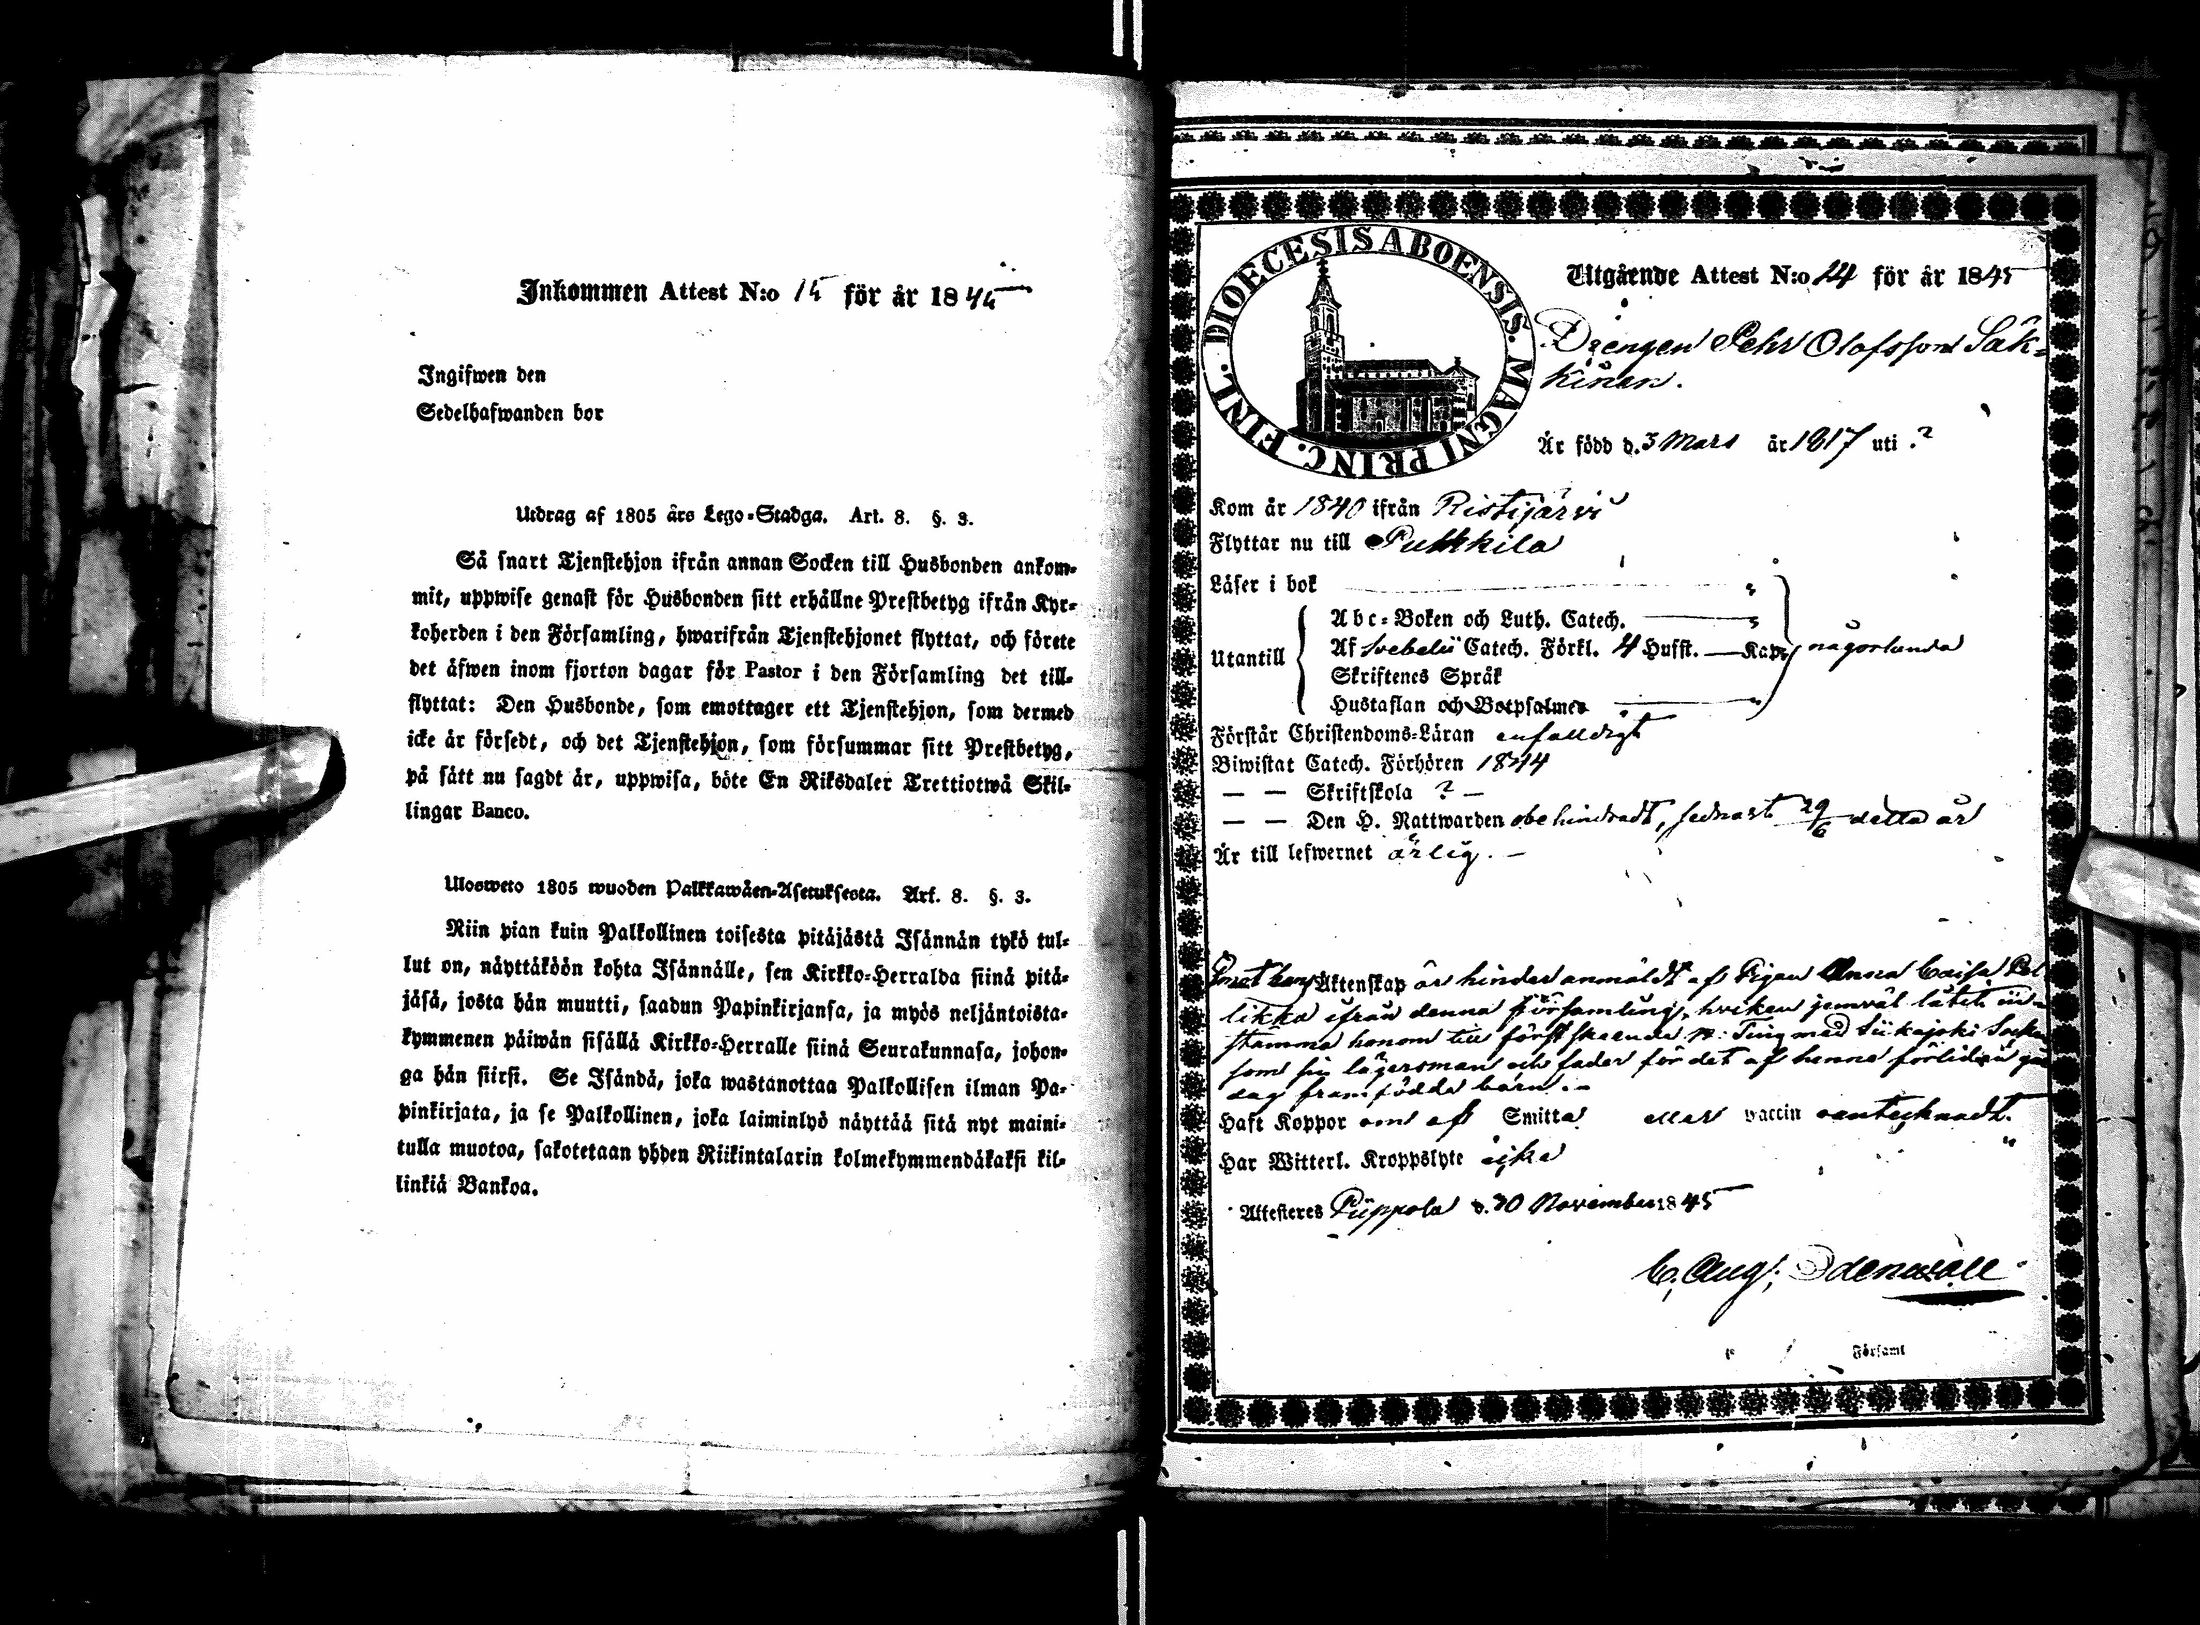 Inkommen Attest N:o 15 för år 1845
Ingifwen den
Sedelhafwanden bor
Utdrag af 1805 års Lego-Stadga. Art. 8. §. 3.
Så snart Tjenstehjon ifrån annan Socken till Husbonden ankom-
mit, uppwise genast för Husbonden sitt erhållne Prestbetyg ifrån Kyr-
koherden i den Församling, hwarifrån Tjenstehjonet flyttat, och förete
det äfwen inom fjorton dagar för Pastor i den Församling det till-
flyttat: Den Husbonde, som emottager ett Tjenstehjon, som dermed
icke är försedt, och det Tjenstehjon, som försummar sitt Prestbetyg,
på sätt nu sagdt är, uppwisa, böte En Riksdaler Trettiotwå Skil-
lingar Banco.
Ulosweto 1805 wuoden Palkkawäen-Asetuksesta. Art. 8. §. 3.
Niin pian kuin Palkollinen toisesta pitäjästä Isännän tykö tul-
lut on, näyttäköön kohta Isännälle, sen Kirkko-Herralda siinä pitä-
jäsä, josta hän muutti, saadun Papinkirjansa, ja myös neljäntoista-
kymmenen päiwän sisällä Kirkko-Herralle siinä Seurakunnasa, johon-
ga hän siirsi. Se Isändä, joka wastanottaa Palkollisen ilman Pa-
pinkirjata, ja se Palkollinen, joka laiminlyö näyttää sitä nyt maini-
tulla muotoa, sakotetaan yhden Riikintalarin kolmekymmendäkaksi kil-
linkiä Bankoa.
DIOECESIS ABOENSIS. MAGNI PRINC. FINL.
Utgående Attest N:o 24 för år 1845
Drengen Pehr Olofsson Säk-
kinen.
Är född d. 3 Mars år 1817 uti ?
Kom år 1840 ifrån Ristijärvi
Flyttar nu till Pulkkila
Läser i bok
Utantill
Abc-Boken och Luth. Catech.
Af Svebelii Catech. Förkl. 4 Hufst. — Kap. någorlunda
Skriftenes Språk
Hustaflan och Botpsalmer
Förstår Christendoms-Läran enfaldigt
Biwistat Catech. Förhören 1844
— — Skriftskola ? —
— — Den H. Nattwarden obehindradt, sednast 29/6 detta år
Är till lefwernet ärlig. —
Äktenskap är hinder anmäldt af Pigan Anna Caisa Pel-
likka ifrån denna församling, hvilken jemväl låtit in-
stamma honom till först skeende Ting med Siikajoki Socken
som sin lägersman och fader för det af henne förliden
dag framfödda barn. —
Haft Koppor om af Smitta eller vaccin oantecknadt.
Har Witterl. Kroppslyte icke "
Attesteres Piippola d. 30 November 1845
C. Aug. Odenwall
Församl